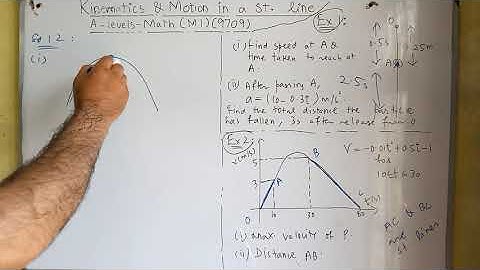 Kinematics & Motion in a St. line
A-levels-Math (M1)(9709)
Ex 1:
(i) find speed at A &
time taken to reach at
A.
0.5s
1.25m
A
(ii) After passing A,
2.5s
a = (10-0.3t) m/s²
find the total distance the particle
has fallen, 3s after release from O
(i)
Ex 2:
v(m/s)
5
3
A
B
0
10
30
t(s)
V = -0.01t²+0.5t-1
for
10≤t≤30
AC & BC
are
st lines
(i) max velocity of P.
(ii) Distance AB.